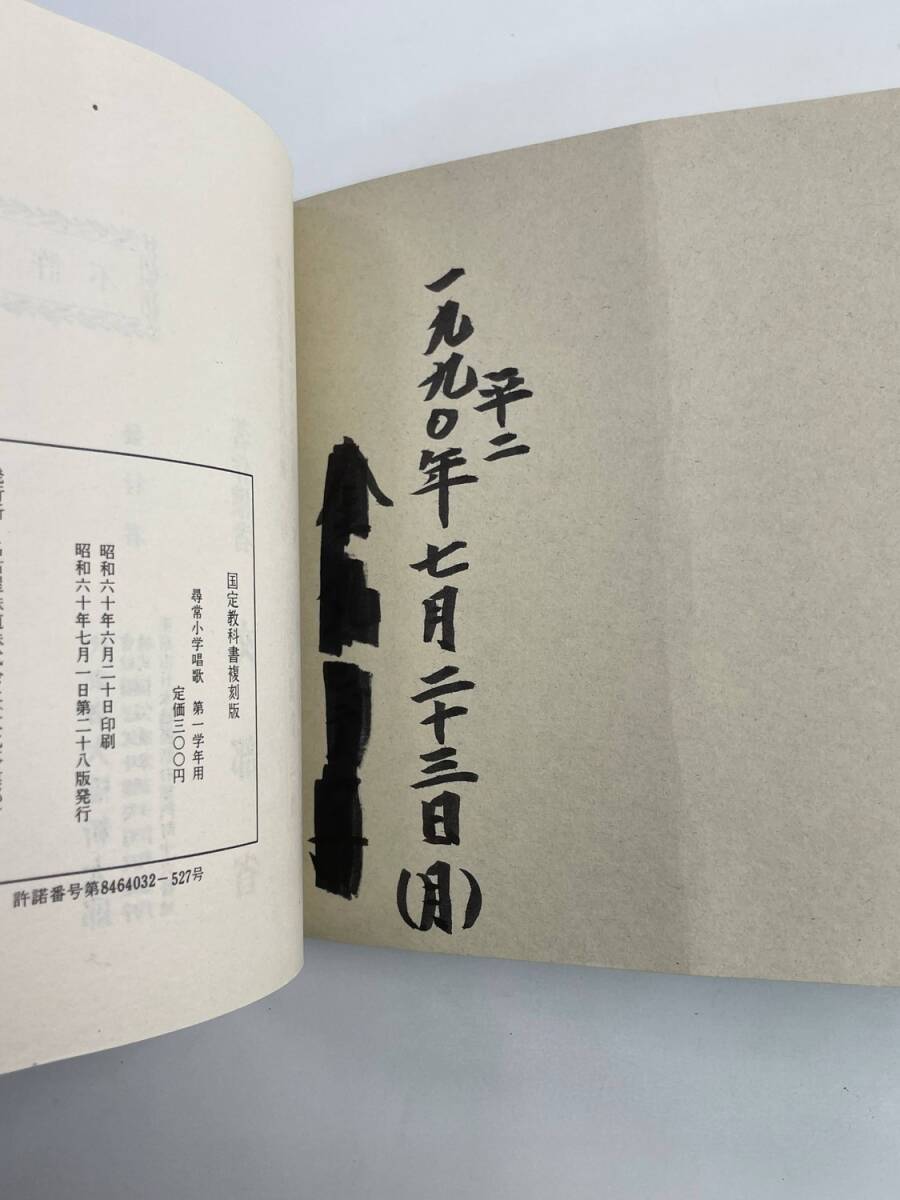 平二
一九九〇年七月二十三日(月)
国定教科書複刻版
尋常小学唱歌 第一学年用
定価三〇〇円
昭和六十年六月二十日印刷
昭和六十年七月一日第二十八版発行
許諾番号第8464032-527号
不許